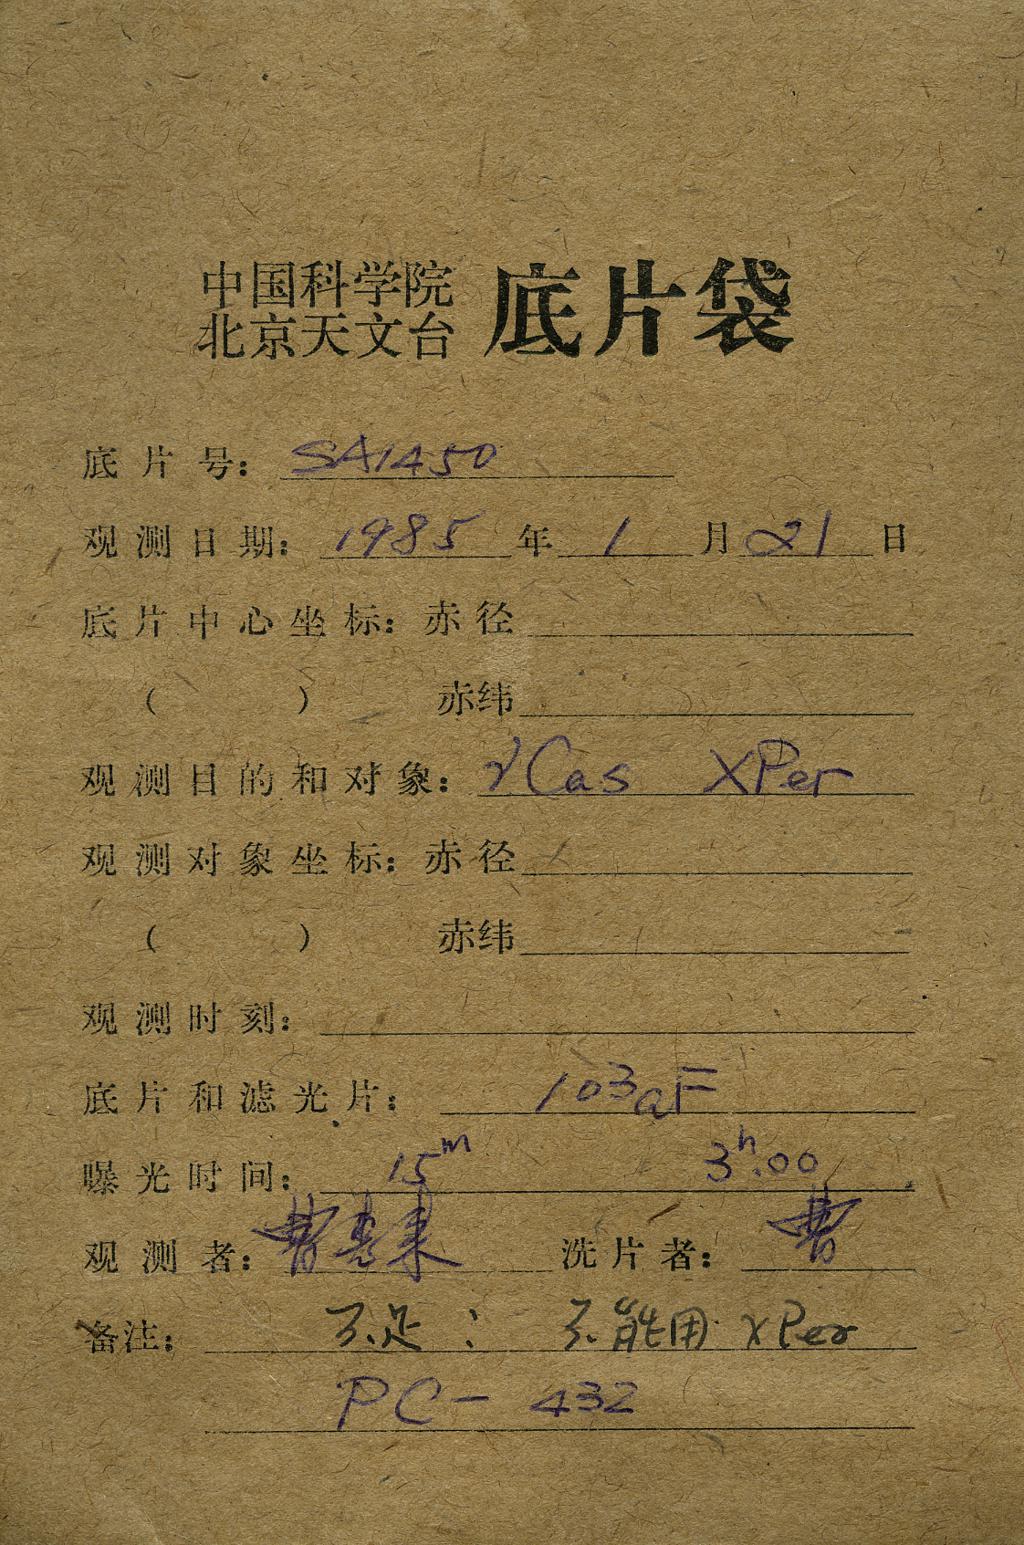 中国科学院
北京天文台 底片袋
底片号: SA1450
观测日期: 1985 年 1 月 21 日
底片中心坐标: 赤径
( ) 赤纬
观测目的和对象: γCas XPer
观测对象坐标: 赤径
( ) 赤纬
观测时刻:
底片和滤光片: 103aF
曝光时间: 15ᵐ 3ʰ.00
观测者: 曹惠来 洗片者: 曹
备注: 不足: 不能用 XPer
PC-432